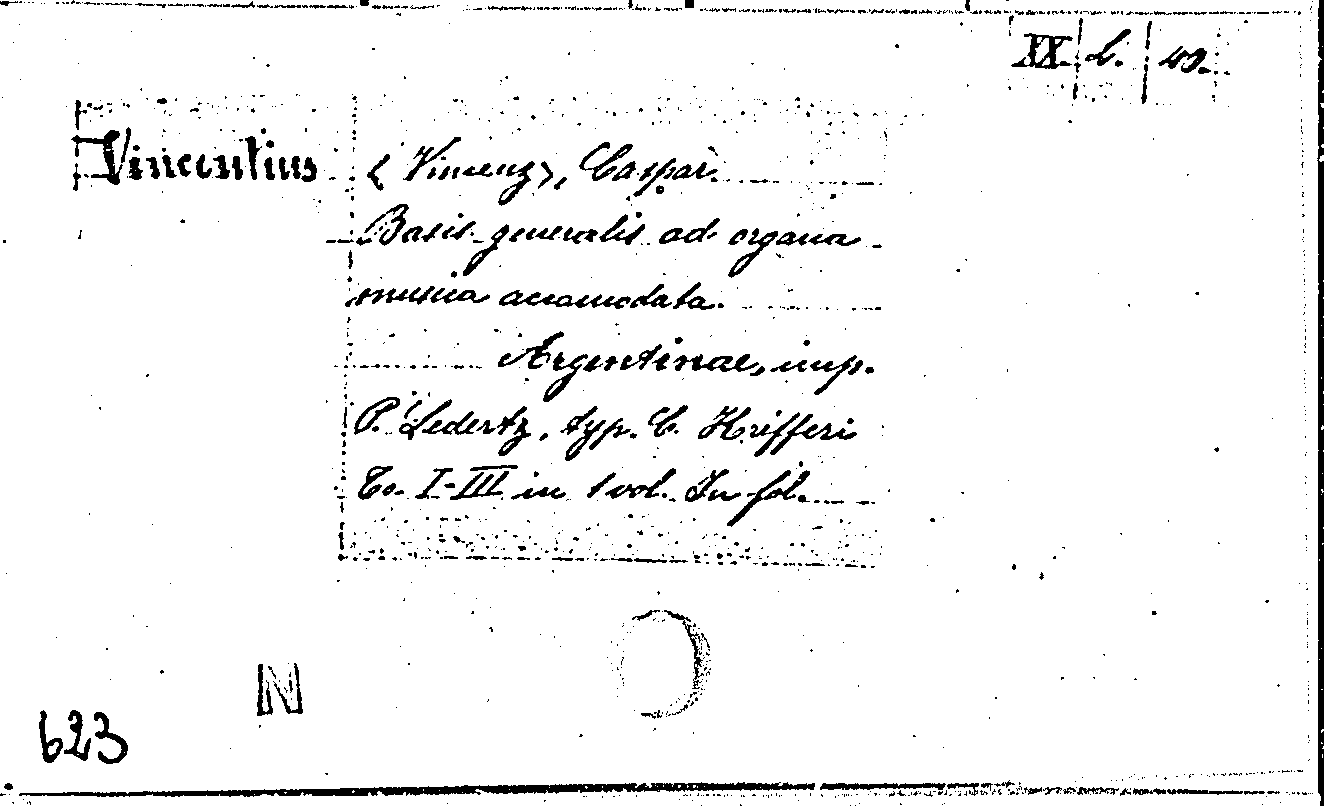 XX. b. 40.
Vincentius <Vincenz>, Caspar.
Basis generalis ad organa
musica accomodata.
Argentinae, imp.
P. Ledertz, typ. C. Kifferi
To. I-III in 1 vol. In fol.
N
623